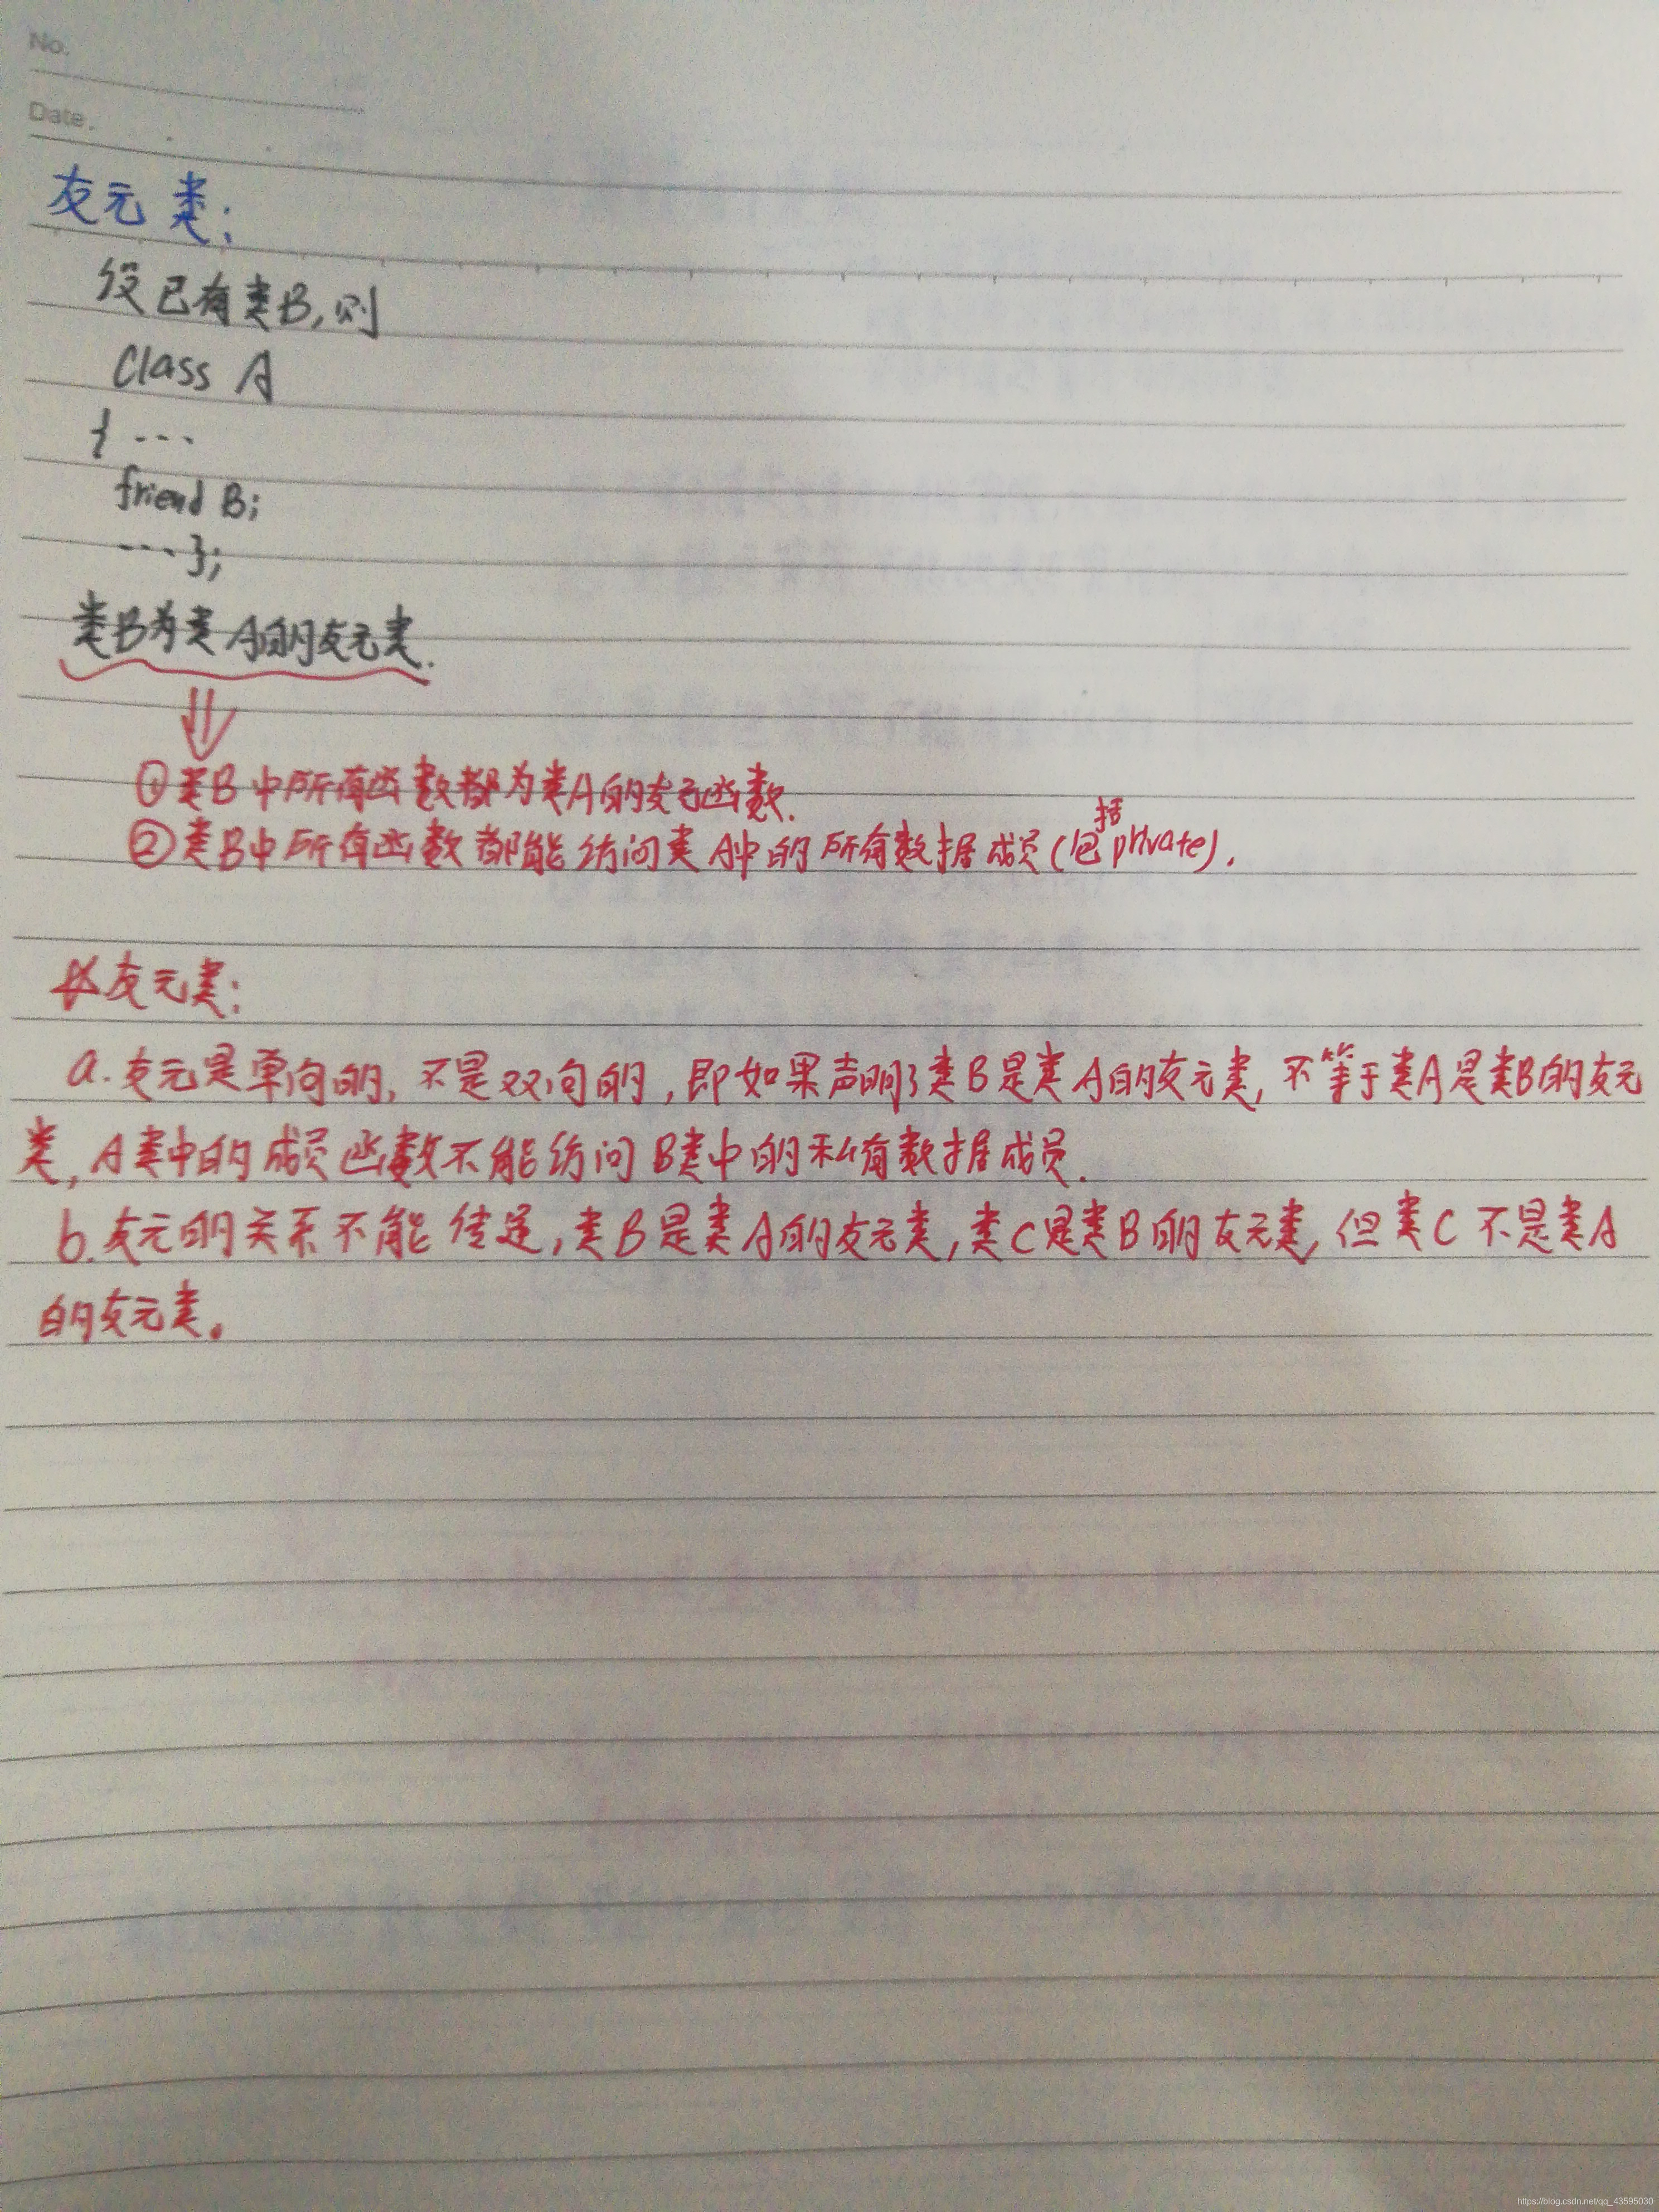 No.
Date.
友元类:
设已有类B,则
Class A
{ ...
friend B;
...};
类B为类A的友元类.
①类B中所有函数都为类A的友元函数.
②类B中所有函数都能访问类A中的所有数据成员(包括private).
友元类:
a.友元是单向的,不是双向的,即如果声明了类B是类A的友元类,不等于类A是类B的友元
类,A类中的成员函数不能访问B类中的私有数据成员.
b.友元的关系不能传递,类B是类A的友元类,类C是类B的友元类,但类C不是类A
的友元类。
https://blog.csdn.net/qq_43595030